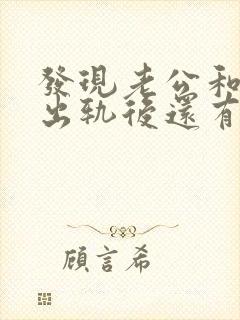 發現老公和
出軌後還有
顧言希